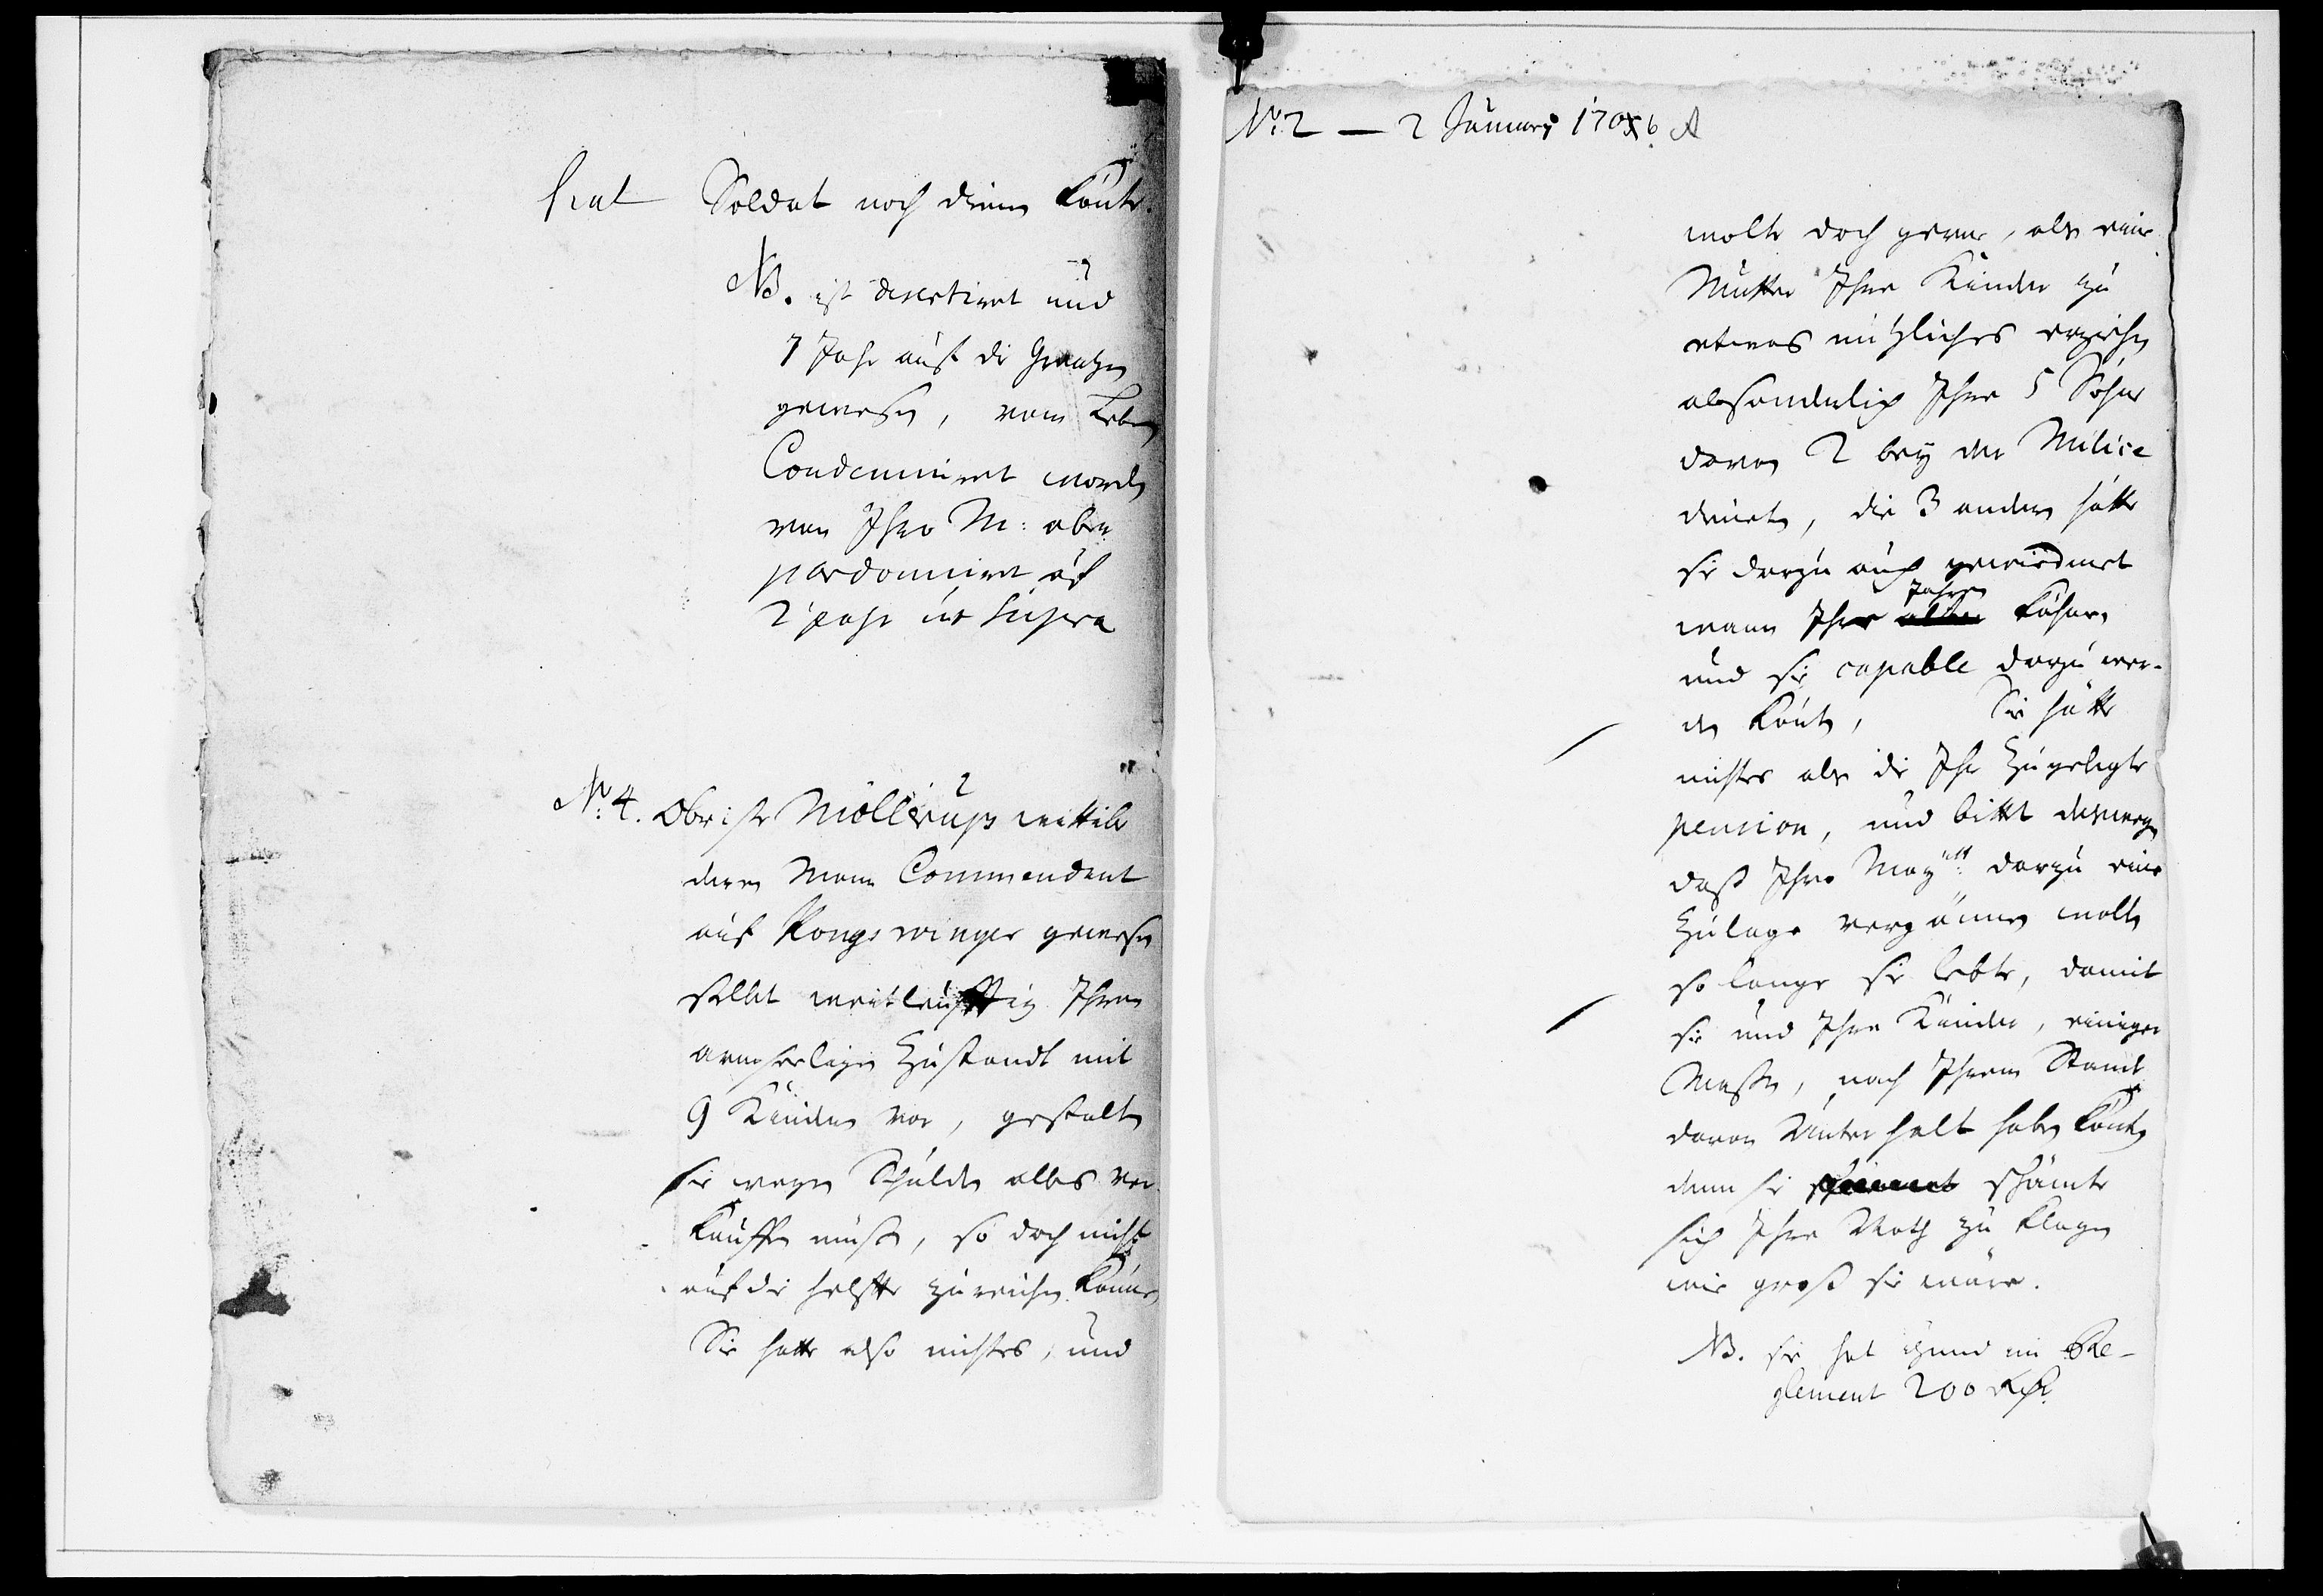 hat Soldat noch dienen könte.
NB. ist desertiret und
7 Jahr auf die Grentzen
gewesen, vom Leben
Condemniret worden
von Ihro M: aber
pardonniret auf
2 jahr ut supra
No: 4. Obriste Möllerups wittibe
deren Mann Commendant
auf Kongswinger gewesen
stellet weitleufftig Ihren
armseeligen Zustandt mit
9 Kindern vor, gestalten
sie wegen Schulden alles ver-
kauffen must, so doch nicht
auf die helffte zureichen könne
Sie hatte also nichtes, und
No: 2 — 2 January 1706. A
wolte doch gerne, als eine
Mutter Ihre Kinder zu
etwas nützliches erziehen
absonderlich Ihre 5 Söhne
davon 2 bey der Milice
dienten, die 3 andern hätte
sie darzu auch gewiedmet
wann Ihre Jahren kähmen
und sie capable darzu wer-
den könten, Sie hätte
nichtes als die Ihr Zugelegte
pension, und bittet deswegen
daß Ihro Maytt: darzu eine
Zulage vergönnen wolten
so lange sie lebte, damit
sie und Ihre Kinder, einiger
Massen, nach Ihrem Stand
davon Unterhalt haben könten
denn sie schämte
sich Ihre Noth zu klagen
wie groß sie wäre.
NB. sie hat im Re-
glement 200 Rthr.